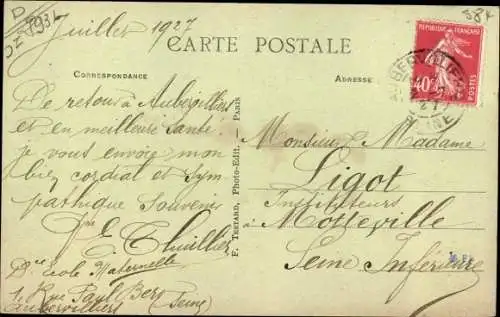 Juillet 1927
CARTE POSTALE
CORRESPONDANCE
ADRESSE
De retour à Aubervilliers
et en meilleure santé
je vous envoie mon
bien cordial et sym
pathique Souvenir
E. Thuillier
École Maternelle
Rue Paul Bert
Aubervilliers (Seine)
F. TESTARD, Photo-Edit. - PARIS
Monsieur, Madame
Ligot
Instituteurs
à Motteville
Seine Inférieure
REPUBLIQUE FRANÇAISE
40c
POSTES
AUBERVILLIERS
SEINE